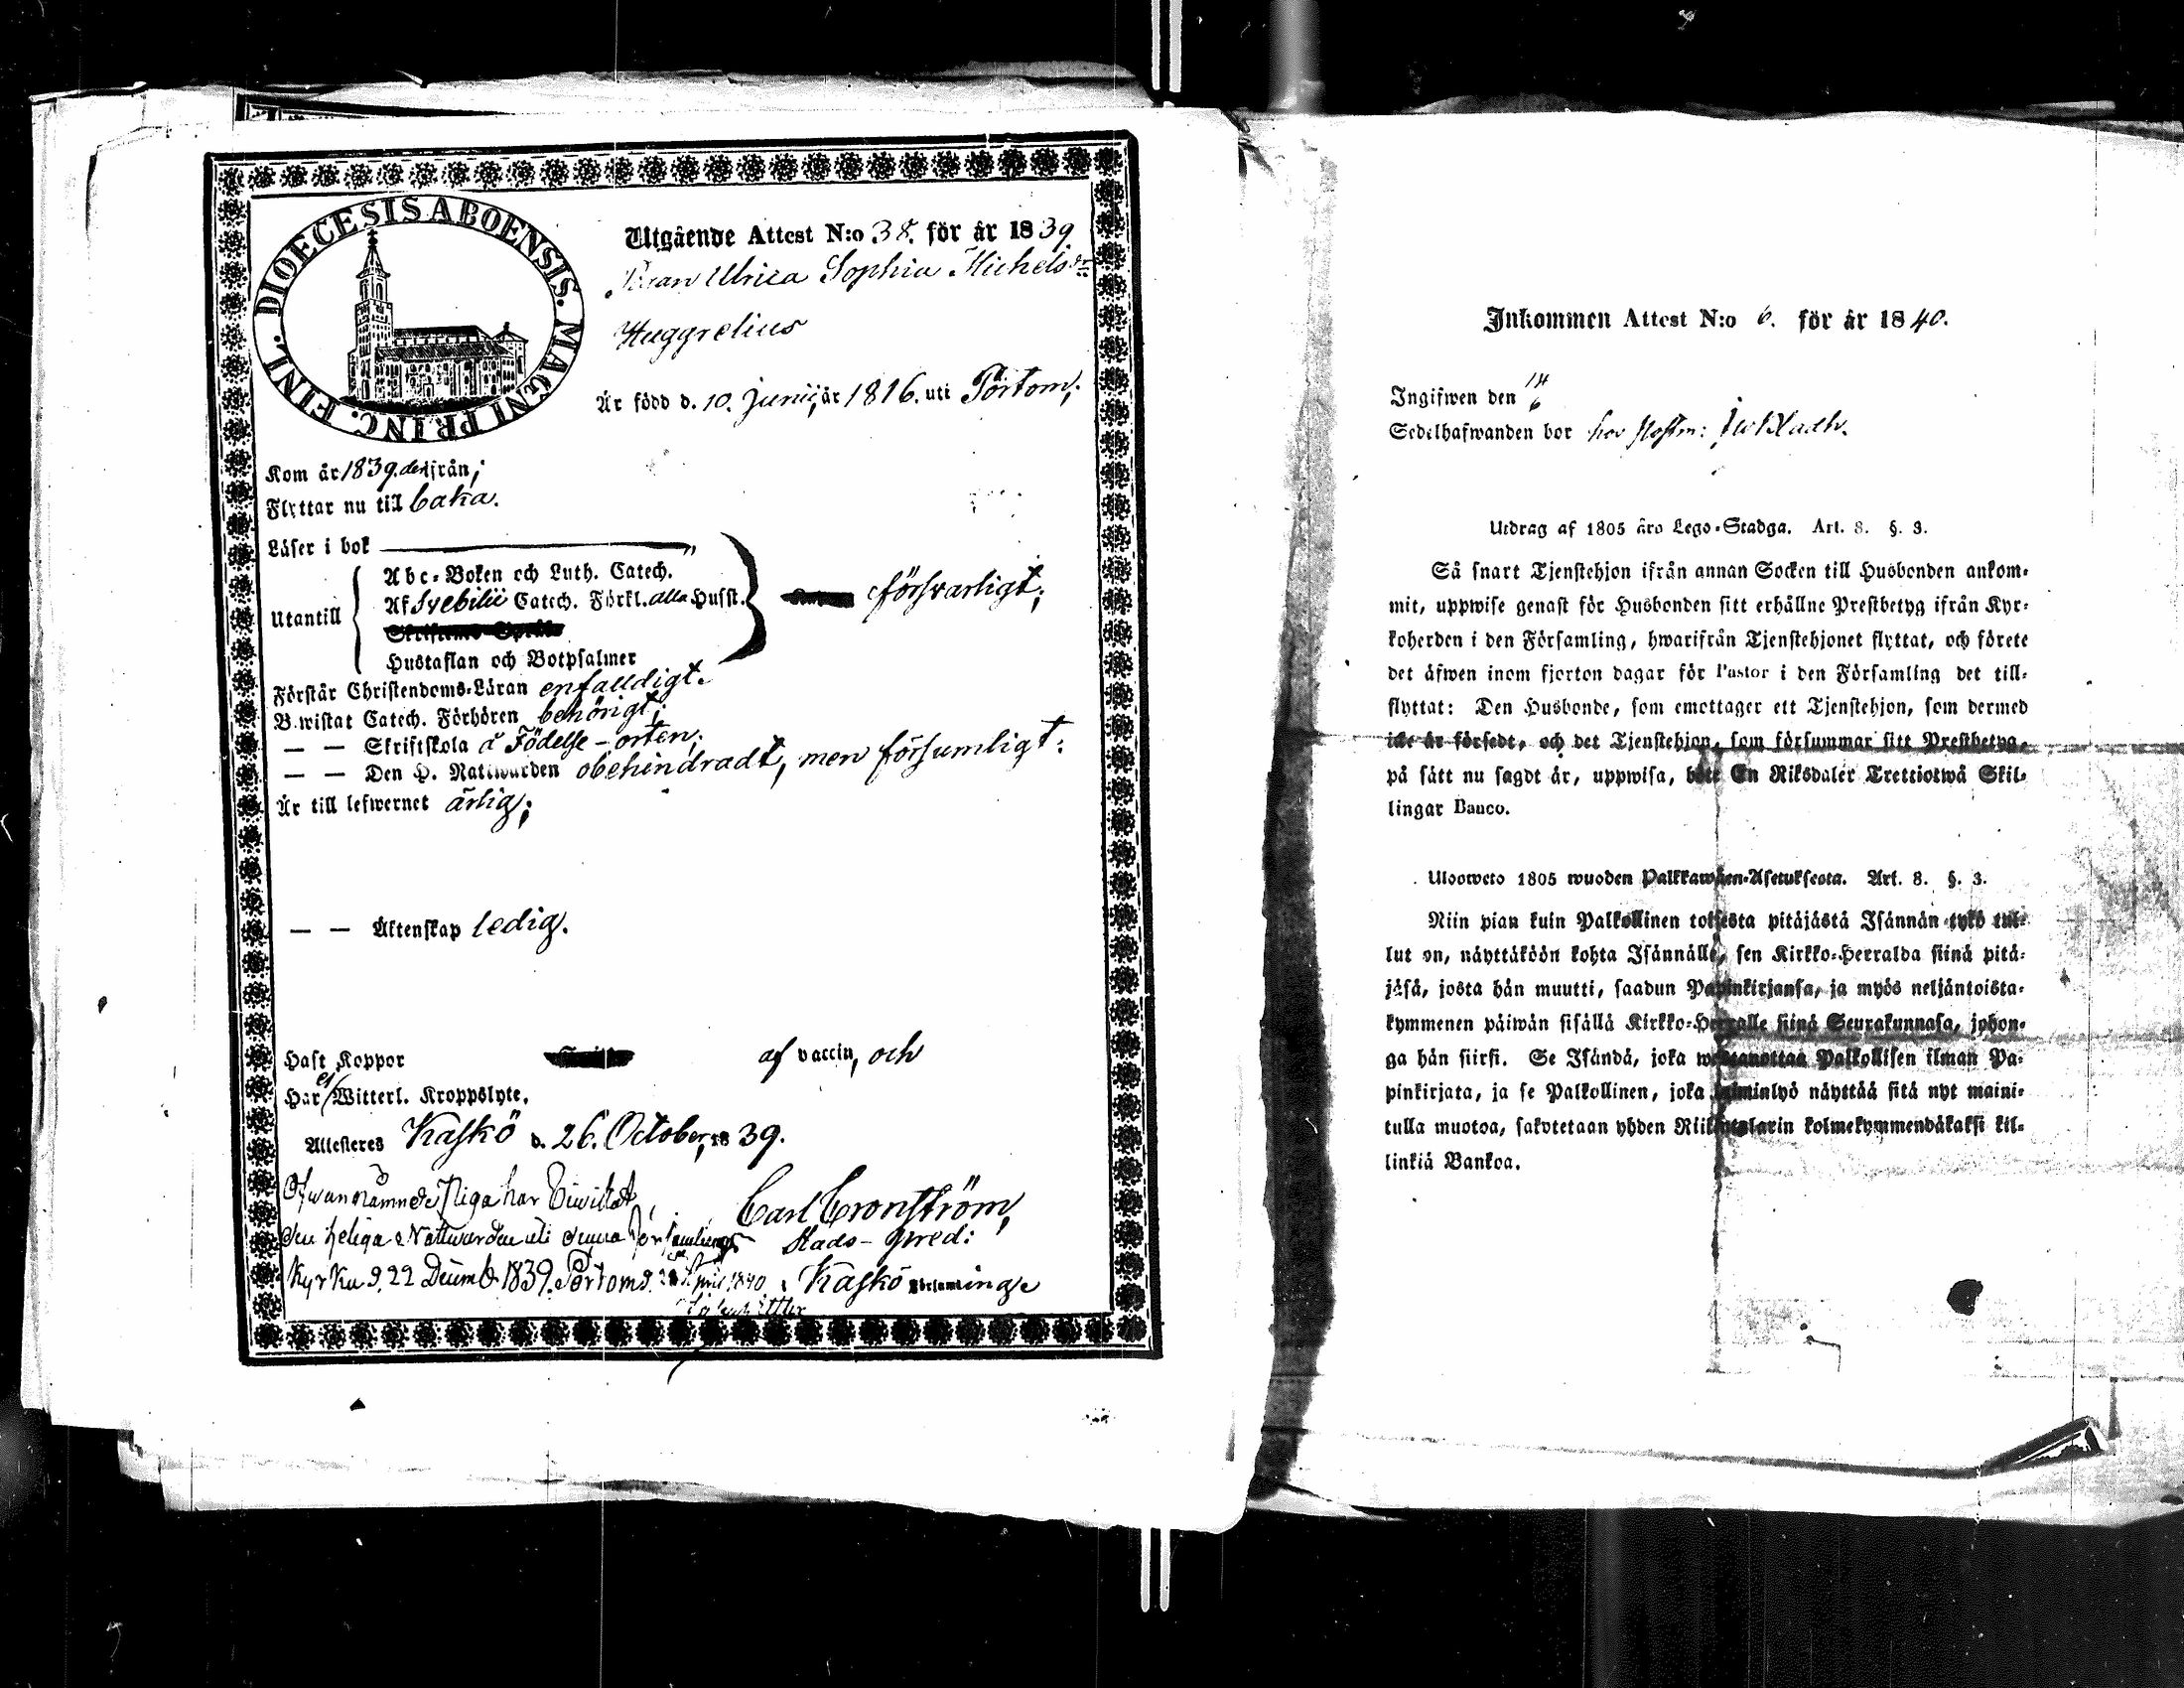 DIOECESIS ABOENSIS. MAGNI PRINC. FINL.
Utgående Attest N:o 38. för år 1839
Pigan Ulrica Sophia Michelsdr
Huggrelius
Är född d. 10. Junii, år 1816. uti Pörtom;
Kom år 1839. den från;
Flyttar nu till baka.
Läser i bok
Utantill
Abc-Boken och Luth. Catech.
Af Svebilii Catech. Förkl. alla Husst.
försvarligt;
Hustaflan och Botpsalmer
Förstår Christendoms-Läran enfalldigt.
Bewistat Catech. Förhören behörigt;
— — Skriftskola å Födelse-orten;
— — Den H. Nattwarden obehindradt, men försumligt:
Är till lefwernet ärlig;
— — Äktenskap ledig.
Haft Koppor af vaccin, och
Har ej Witterl. Kroppslyte,
Attesteres Kaskö d. 26. October, 1839.
Ofwannämnde Piga har biwistat
den heliga Nattwarden uti denna Församlings
Kyrka d. 22 Decemb 1839. Pörtom d. April 1840
Carl Cronström,
Stads-Pred:
i Kaskö Församlinge
Inkommen Attest N:o 6. för år 1840.
Ingifwen den 14/6
Sedelhafwanden bor hos
Utdrag af 1805 års Lego-Stadga. Art. 8. §. 3.
Så snart Tjenstehjon ifrån annan Socken till Husbonden ankom-
mit, uppwise genast för Husbonden sitt erhållne Prestbetyg ifrån Kyr-
koherden i den Församling, hwarifrån Tjenstehjonet flyttat, och förete
det äfwen inom fjorton dagar för Pastor i den Församling det till-
flyttat: Den Husbonde, som emottager ett Tjenstehjon, som dermed
icke är försedt, och det Tjenstehjon, som försummar sitt Prestbetyg,
på sätt nu sagdt är, uppwisa, böte En Riksdaler Trettiotwå Skil-
lingar Banco.
Ulosweto 1805 wuoden Palkkawäen-Asetuksesta. Art. 8. §. 3.
Niin pian kuin Palkollinen toisesta pitäjästä Isännän tykö tul-
lut on, näyttäköön kohta Isännälle, sen Kirkko-Herralda siinä pitä-
jäsä, josta hän muutti, saadun Papinkirjansa, ja myös neljäntoista-
kymmenen päiwän sisällä Kirkko-Herralle siinä Seurakunnasa, johon-
ga hän siirsi. Se Isändä, joka wastanottaa Palkollisen ilman Pa-
pinkirjata, ja se Palkollinen, joka laiminlyö näyttää sitä nyt maini-
tulla muotoa, sakotetaan yhden Riikintalarin kolmekymmendäkaksi kil-
linkiä Bankoa.